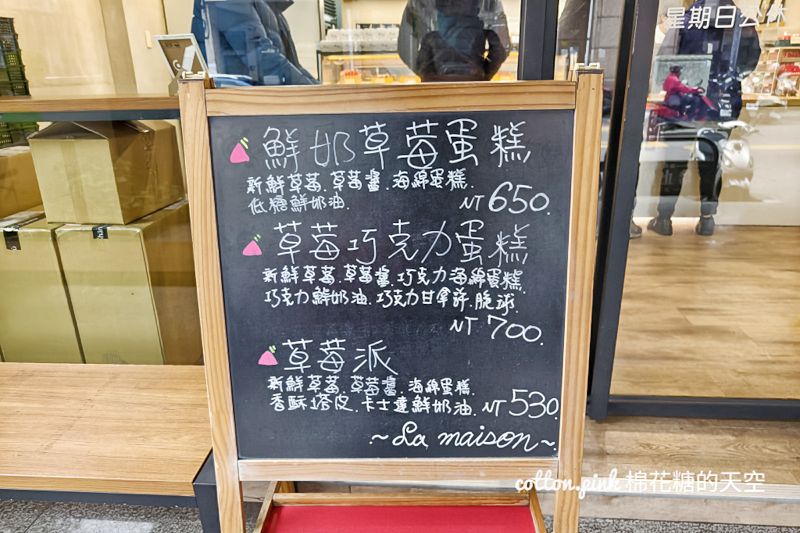 星期日公休
鮮奶草莓蛋糕
新鮮草莓.草莓醬.海綿蛋糕.
低糖鮮奶油. NT 650.
草莓巧克力蛋糕
新鮮草莓.草莓醬.巧克力海綿蛋糕.
巧克力鮮奶油.巧克力甘拿許.脆球.
NT 700.
草莓派
新鮮草莓.草莓醬.海綿蛋糕.
香酥塔皮.卡士達鮮奶油. NT 530.
~La maison~
cotton.pink 棉花糖的天空